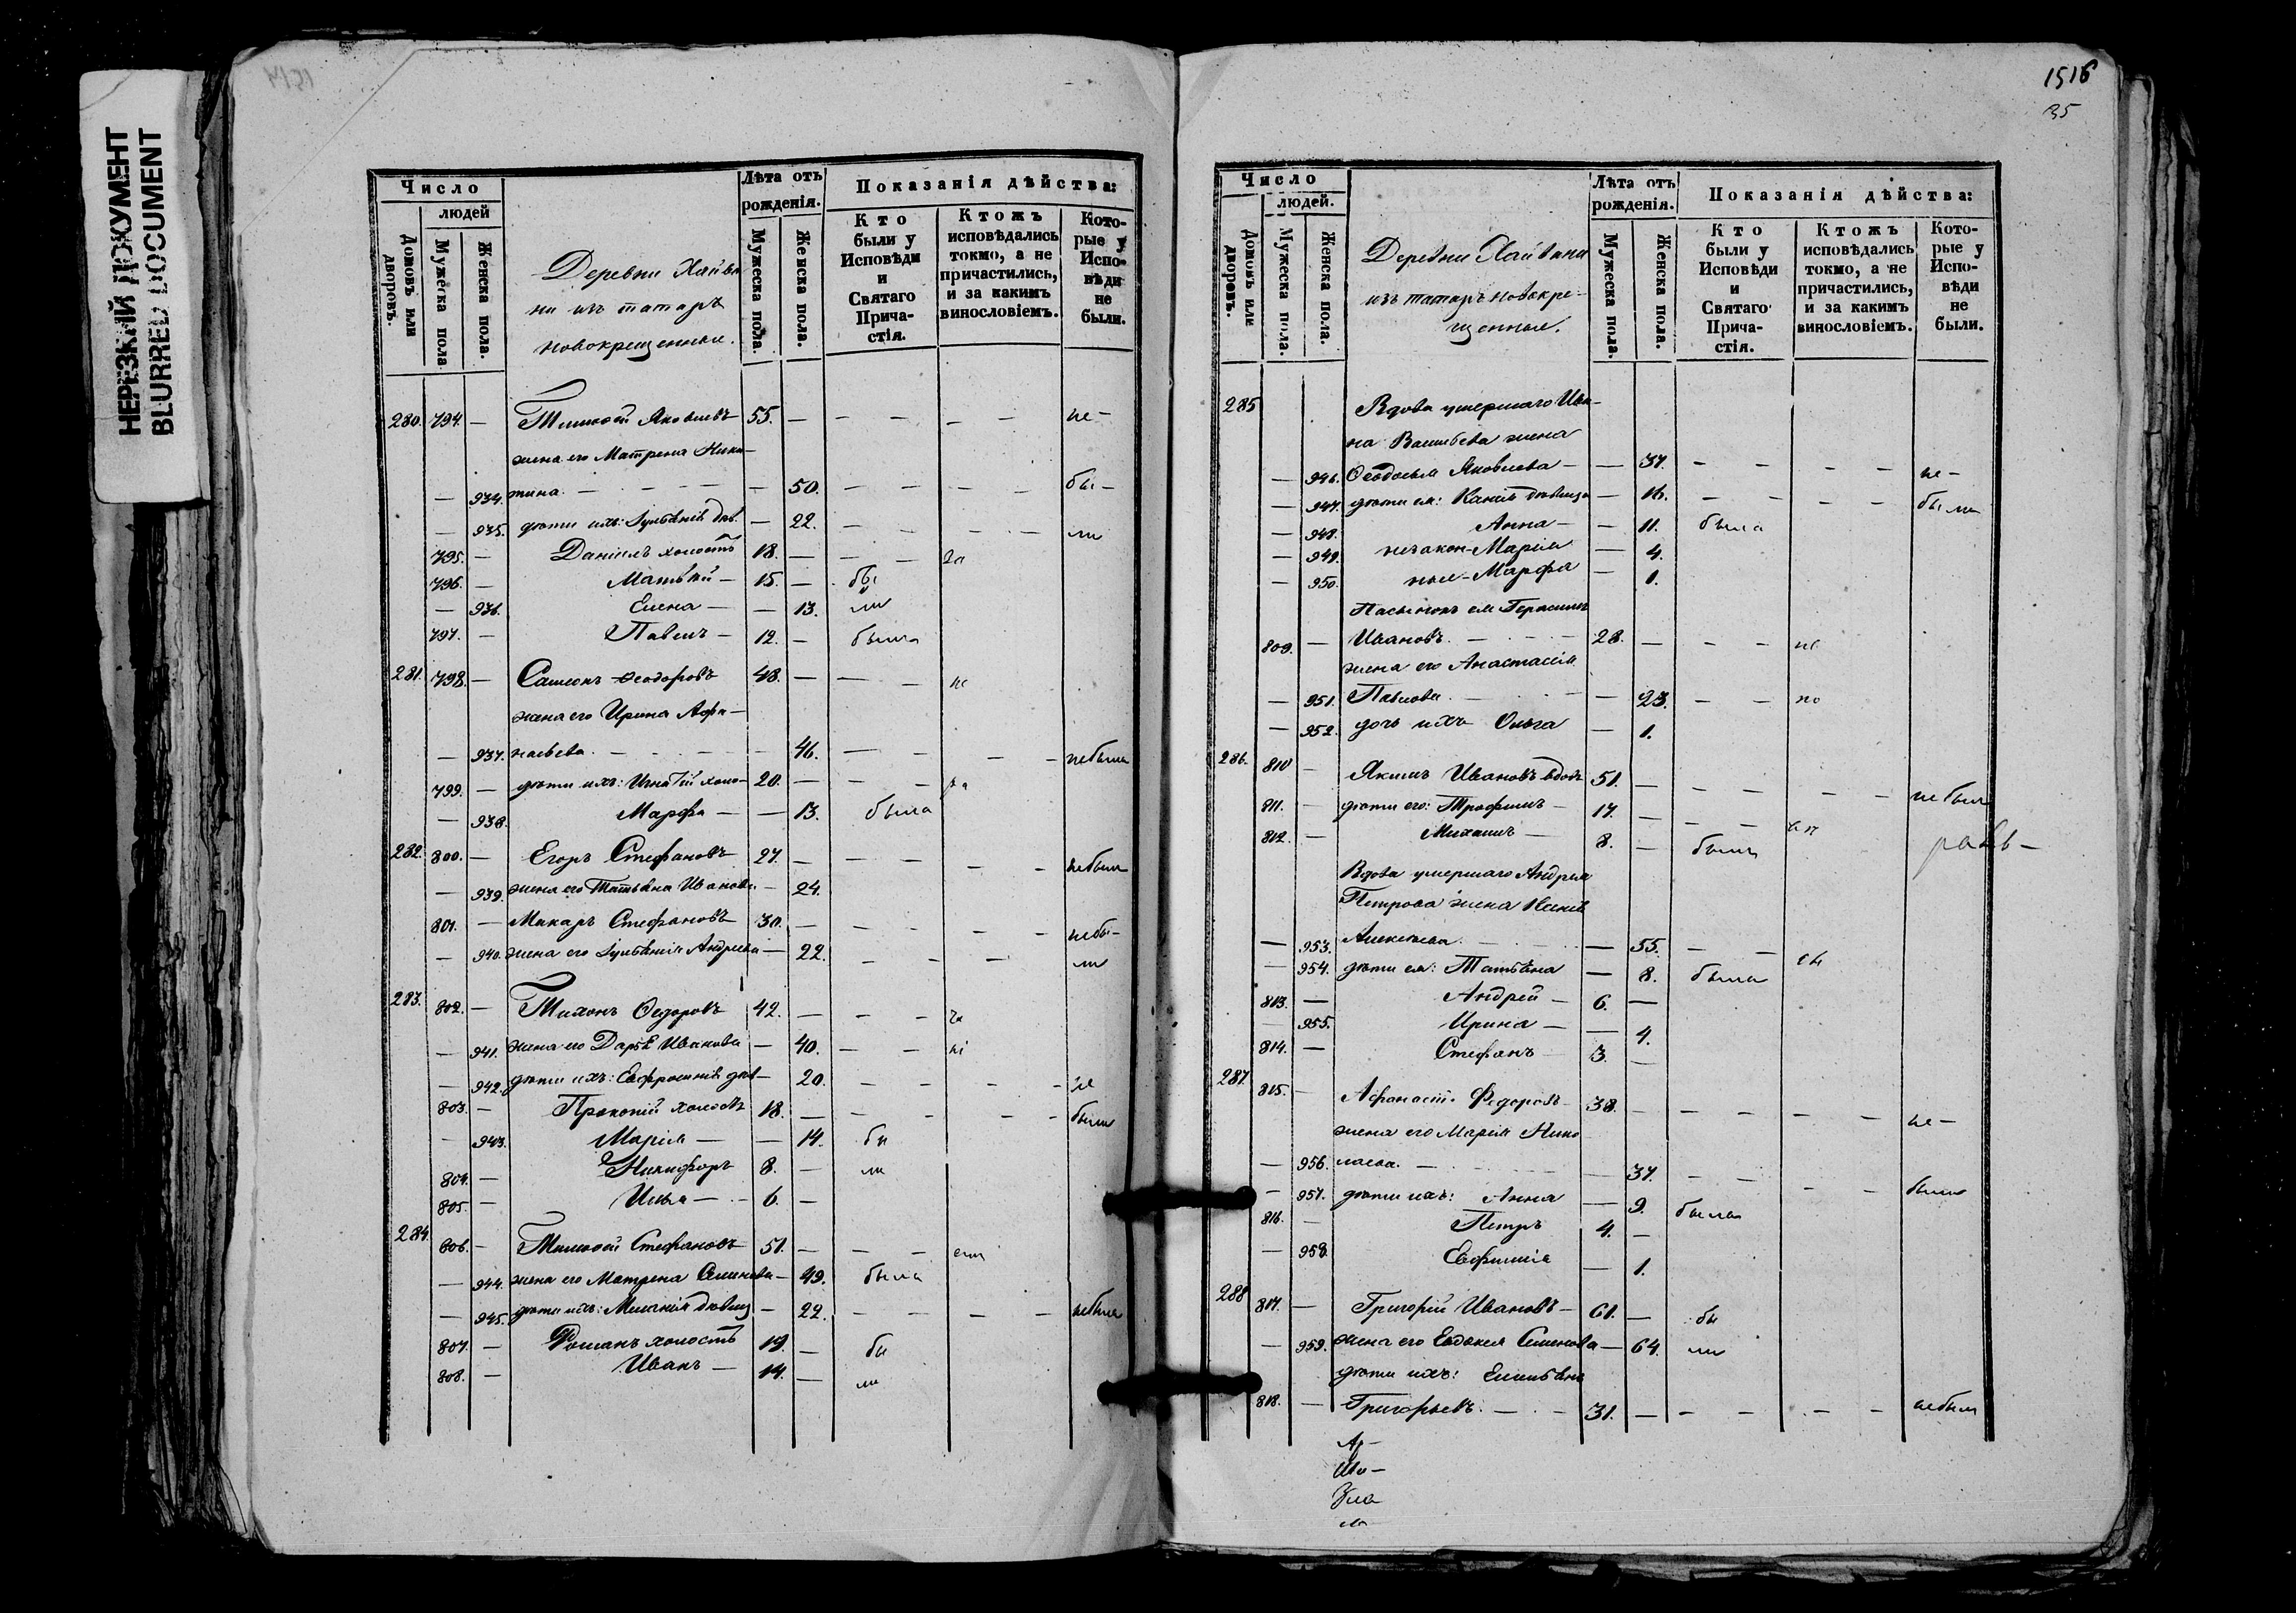 НЕРЕЗКИЙ ДОКУМЕНТ
BLURRED DOCUMENT
Число
людей
Домовъ или дворовъ.
Мужеска пола
Женска пола.
Деревни Хайва-
ни изъ татаръ
новокрещенные.
Лѣта отъ рожденія.
Мужеска пола.
Женска пола.
Показанія дѣйства:
Кто были у Исповѣди и Святаго Прича-стія.
Ктожъ исповѣдались токмо, а не причастились, и за какимъ винословіемъ.
Кото-рые у Испо-вѣди не были.
280. 794. — Яковлевъ 55. — — — — — не —
жена его Матрена Ники-
— 934. тина. — — 50. — — — — бы —
— 935. дѣти ихъ: дѣв. — 22. — — — — ли
795. — Даніилъ холостъ 18. — — —
796. — Матвѣй — 15. — бы
— 936. Елена — — 13. ли
797. — Павелъ — 12. — былъ
281. 798. — Симеонъ Ѳеодоровъ 48. — — — не
жена его Ирина Афа-
— 937. насьева. — — 46. — — — небыли
799. — дѣти ихъ: Игнатій холо- 20. — — —
— 938. Марфа — — 13. была
282. 800. — Егоръ Стефановъ 27. — — — — — небыли
— 939. жена его Татьяна Иванова — 24.
801. — Макаръ Стефановъ 30. — — — — — небы-
— 940. жена его Андреева — 22. — — — ли
283. 802. — Тихонъ Ѳедоровъ 42. — — —
— 941. жена его Дарья Иванова — 40. — —
— 942. дѣти ихъ: Евфросинія дѣв — 20. — — — — не
803. — Прокопій холостъ 18. — — — — — были
— 943. Марія — — 14. бы
804. — Никифоръ 8. — ли
805. — Илья — 6. —
284. 806. — Стефановъ 51. — — —
— 944. жена его Матрена Семенова — 49. была
— 945. дѣти ихъ: Меланія дѣвица — 22. — — — — небыла
807. — Романъ холостъ 19. — бы
808. — Иванъ — 14. — ли
1516
35
Число
людей.
Домовъ или дворовъ.
Мужеска пола.
Женска пола.
Деревни Хайвани
изъ татаръ новокре-
щенные.
Лѣта отъ рожденія.
Мужеска пола.
Женска пола.
Показанія дѣйства:
Кто были у Исповѣди и Святаго Прича-стія.
Ктожъ исповѣдались токмо, а не причастились, и за какимъ винословіемъ.
Кото-рые у Испо-вѣди не были.
285 Вдова умершаго Ива-
на Васильева жена
— 946. Ѳеодосья Яковлева — — 37. — — — — не —
— 947. дѣти ея: дѣвица — 16. — — — — были
— 948. Анна — — 11. была
— 949. незакон- Марія — 4.
— 950. ные — Марфа — 1.
Пасынокъ ея Герасимъ
809. — Ивановъ. — 28. — — — не
жена его Анастасія
— 951. Павлова. — — 23. — —
— 952. дочь ихъ Ольга — 1.
286. 810 — Якимъ Ивановъ вдовъ 51. — — — — — небылъ
811. — дѣти его: Трофимъ — 17. — — —
812. — Михаилъ — 8. — былъ
Вдова умершаго Андрея
Петрова жена
— 953. Алексѣева. — — 55. — —
— 954. дѣти ея: Татьяна — 8. была
813. — Андрей — 6. —
— 955. Ирина — — 4.
814. — Стефанъ — 3. —
287. 815. — Афанасій Ѳедоровъ 38. — — — — — не —
жена его Марія Нико
— 956. лаева. — — 37. — — — — были
— 957. дѣти ихъ: Анна — 9. была
816. — Петръ 4. —
— 958. Евфимія — 1.
288 817. — Григорій Ивановъ — 61. — бы
— 959. жена его Евдокея Семенова — 64. ли
дѣти ихъ: Емельянъ
818. — Григорьевъ. — 31. — — — — — небылъ